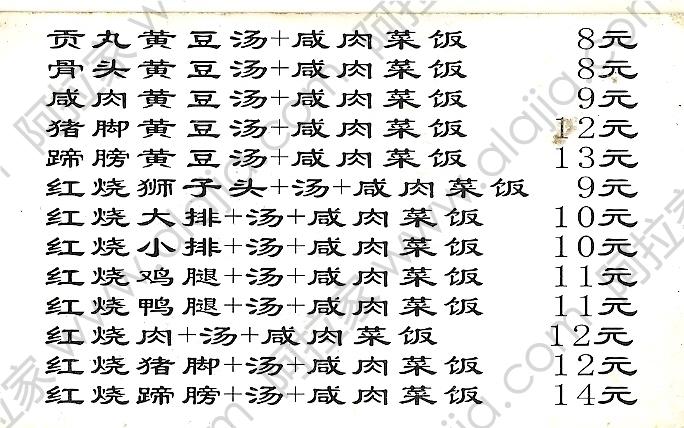 贡丸黄豆汤+咸肉菜饭 8元
骨头黄豆汤+咸肉菜饭 8元
咸肉黄豆汤+咸肉菜饭 9元
猪脚黄豆汤+咸肉菜饭 12元
蹄膀黄豆汤+咸肉菜饭 13元
红烧狮子头+汤+咸肉菜饭 9元
红烧大排+汤+咸肉菜饭 10元
红烧小排+汤+咸肉菜饭 10元
红烧鸡腿+汤+咸肉菜饭 11元
红烧鸭腿+汤+咸肉菜饭 11元
红烧肉+汤+咸肉菜饭 12元
红烧猪脚+汤+咸肉菜饭 12元
红烧蹄膀+汤+咸肉菜饭 14元
阿拉家 www.alajia.com